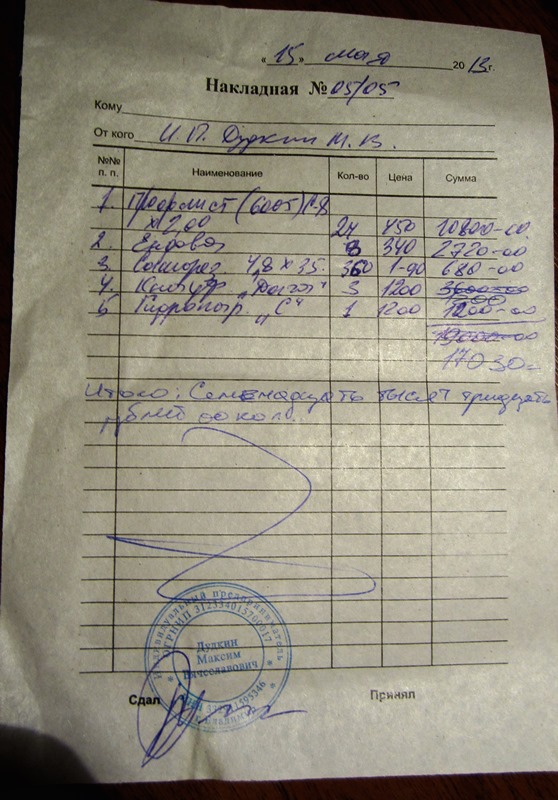 « 15 » мая 2013г.
Накладная №05/05
Кому
От кого И.П. Дудкин М. В.
№№ п. п. Наименование Кол-во Цена Сумма
1. Профлист (6005) С-8
х 2,00 24 450 10800-00
2. Ендова 8 340 2720-00
3. Саморез. 4,8 х 35. 360 1-90 680-00
4. 3 1200 3600-00
5. Гидро "С" 1 1200 1200-00
19000-00
17030=
Итого: Семнадцать тысяч тридцать
рублей 00 коп.
Индивидуальный предприниматель
ОГРНИП 312334015700017
Дудкин
Максим
Вячеславович
ИНН
г. Владимир
Сдал Принял